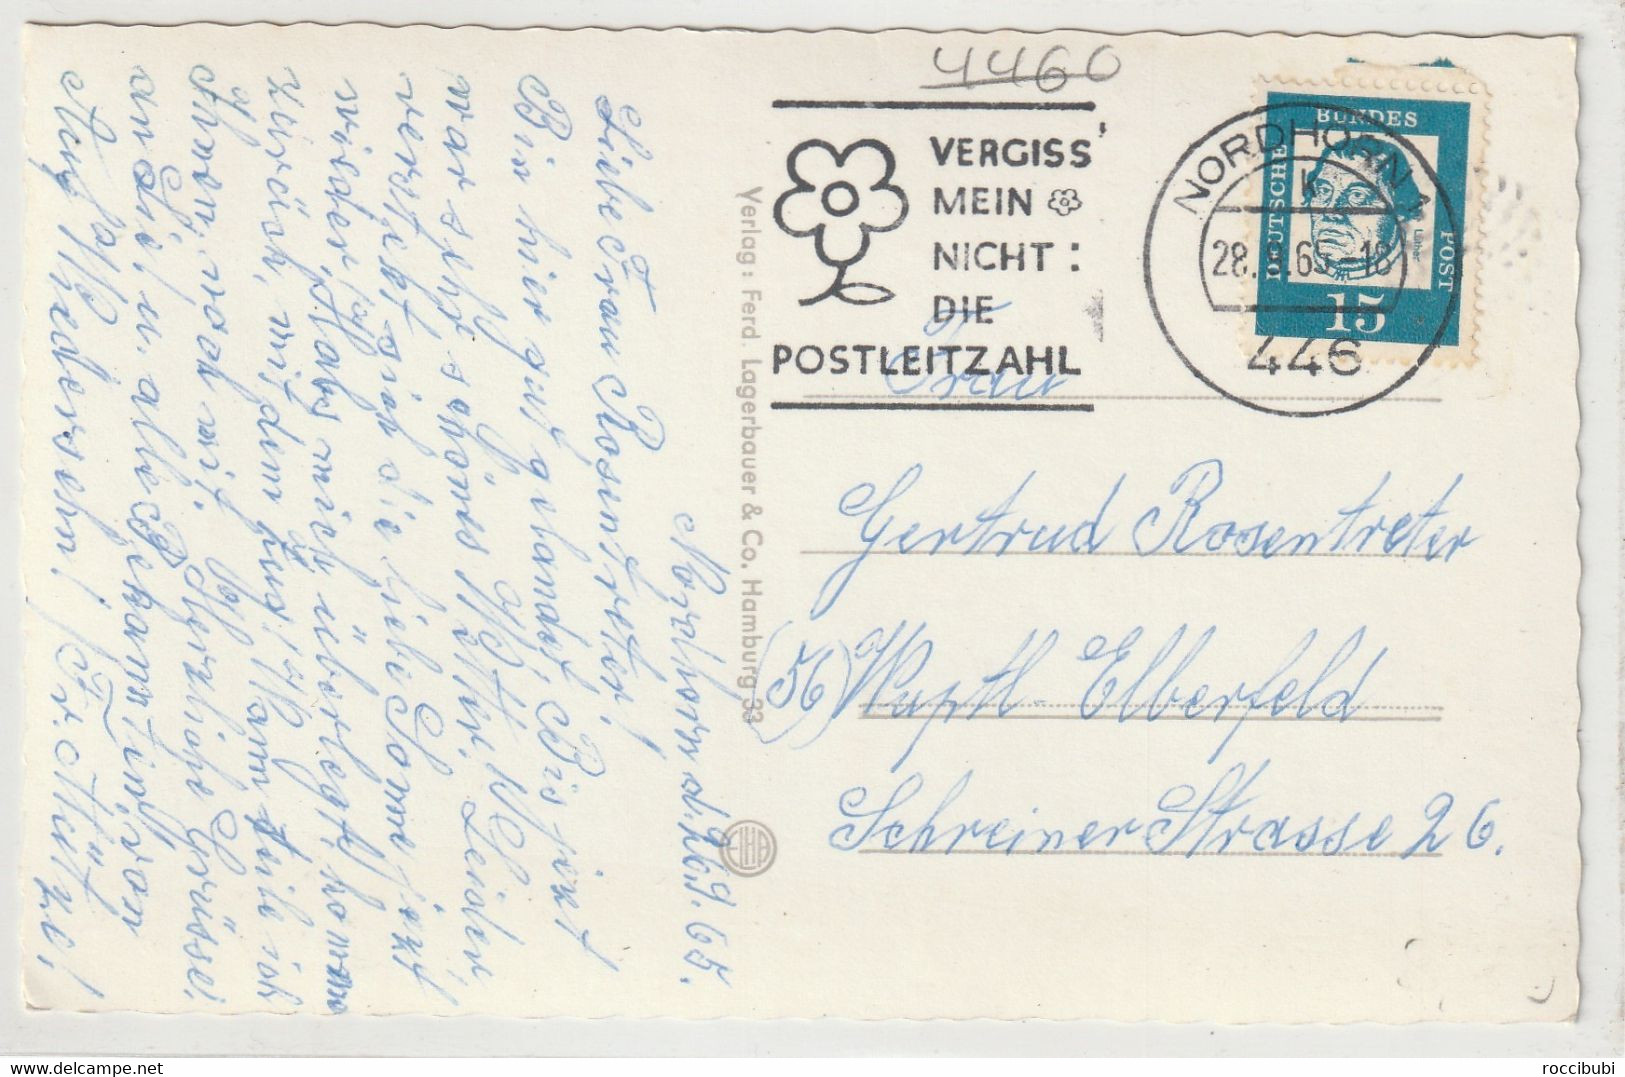 4460
VERGISS'
MEIN
NICHT:
DIE
POSTLEITZAHL
NORDHORN 1
k
28. 9.65-18
446
DEUTSCHE
BUNDES
POST
Luther
15
Frau
Gertrud Rosentreter
(56) Wuptl-Elberfeld
Schreiner Strasse 26.
Verlag: Ferd. Lagerbauer & Co. Hamburg 33
Nordhorn d. 26.9.65.
Liebe Frau Rosentreter!
Bin hier gut gelandet, Bis jetzt
war sehr schönes Wetter. Leider
versteckt sich die liebe Sonne jetzt
wieder. Habs mich überlegt, komme
zurück, mit dem Zug. Wann teile ich
Ihnen noch mit. Herzliche Grüsse
an Sie u. alle Bekannten, von
Auf Wiedersehn! Fr.